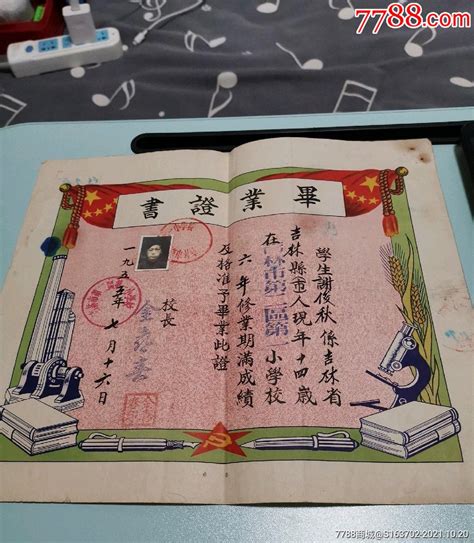 7788.com
書證業畢
學生謝俊秋 係吉林省
吉林縣市人現年十四歲
在吉林市第二區第一小學校
六年修業期滿成績
及格准予畢業此證
校長
一九五五年七月十六日
7788商城@S163702-2021.10.20